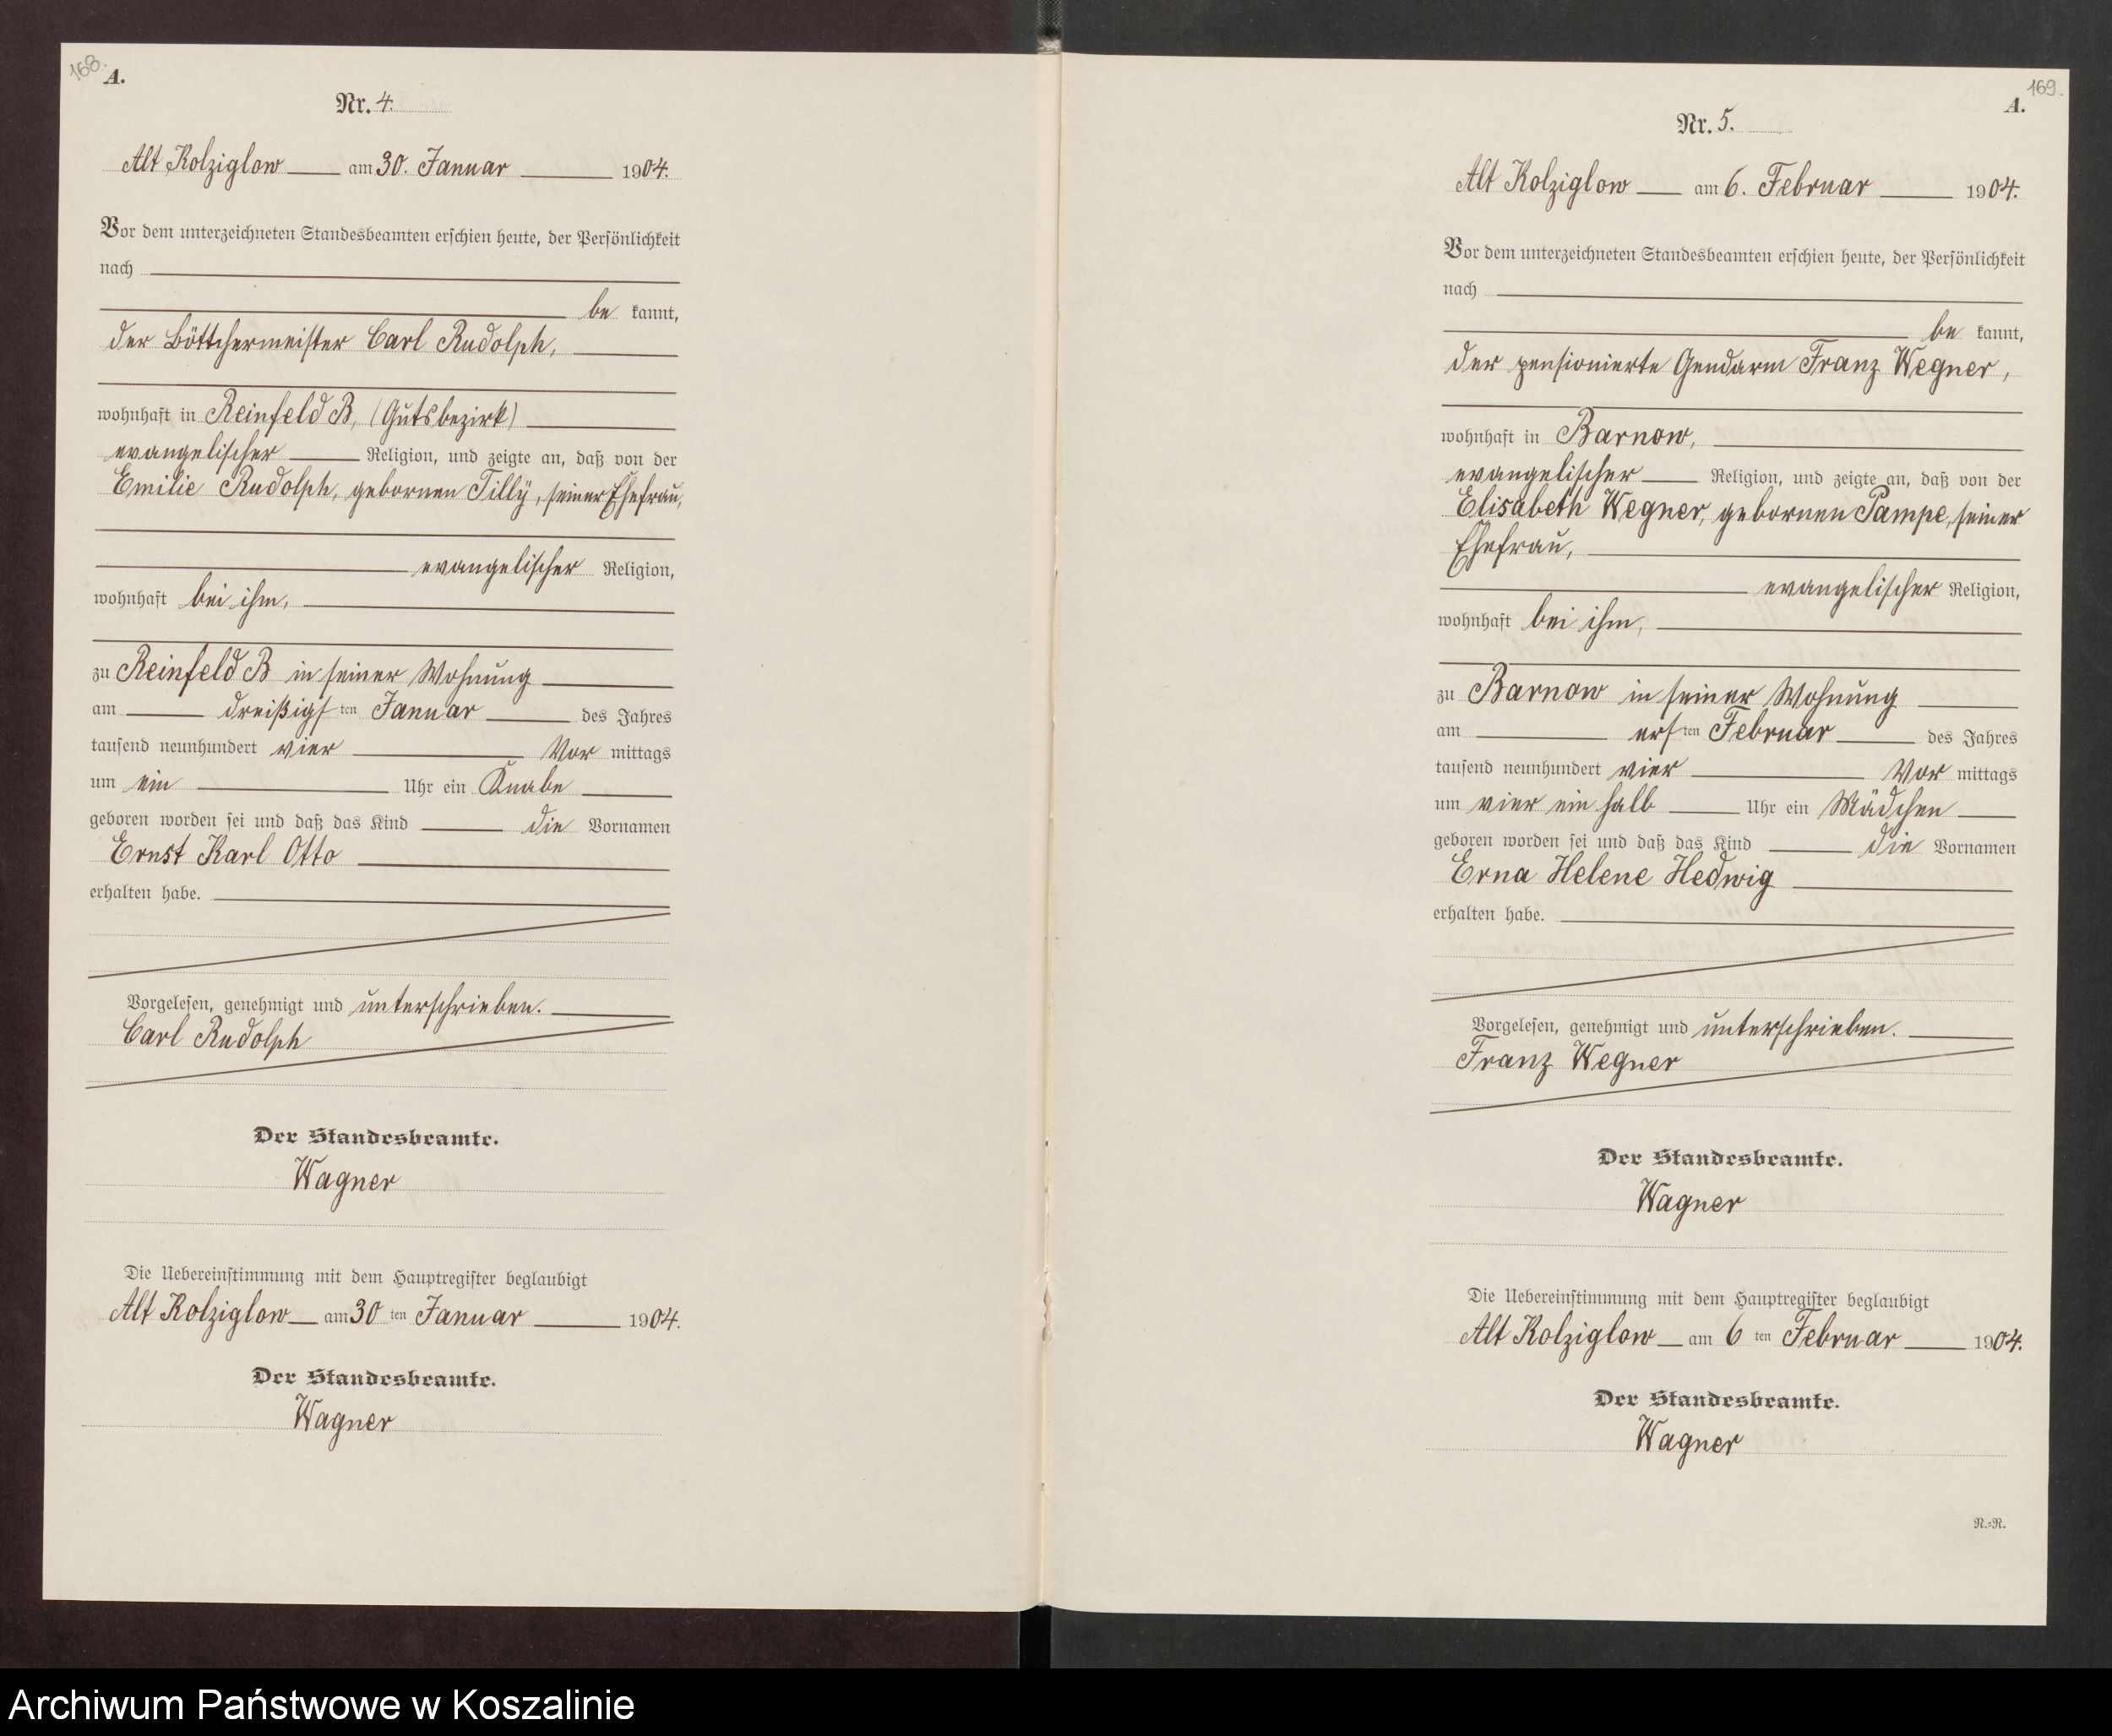 168.
A.
Nr. 4.
Alt Kolziglow am 30. Januar 1904.
Vor dem unterzeichneten Standesbeamten erschien heute, der Persönlichkeit
nach
be kannt,
der Böttchermeister Carl Rudolph,
wohnhaft in Reinfeld B, (Gutsbezirk)
evangelischer Religion, und zeigte an, daß von der
Emilie Rudolph, gebornen Tilly, seiner Ehefrau,
evangelischer Religion,
wohnhaft bei ihm,
zu Reinfeld B in seiner Wohnung
am dreißigsten Januar des Jahres
tausend neunhundert vier Vor mittags
um ein Uhr ein Knabe
geboren worden sei und daß das Kind die Vornamen
Ernst Karl Otto
erhalten habe.
Vorgelesen, genehmigt und unterschrieben.
Carl Rudolph
Der Standesbeamte.
Wagner
Die Uebereinstimmung mit dem Hauptregister beglaubigt
Alt Kolziglow am 30 ten Januar 1904.
Der Standesbeamte.
Wagner
169.
A.
Nr. 5.
Alt Kolziglow am 6. Februar 1904.
Vor dem unterzeichneten Standesbeamten erschien heute, der Persönlichkeit
nach
be kannt,
der pensionierte Gendarm Franz Wegner,
wohnhaft in Barnow,
evangelischer Religion, und zeigte an, daß von der
Elisabeth Wegner, gebornen Pampe, seiner
Ehefrau,
evangelischer Religion,
wohnhaft bei ihm,
zu Barnow in seiner Wohnung
am ersten Februar des Jahres
tausend neunhundert vier Vor mittags
um vier ein halb Uhr ein Mädchen
geboren worden sei und daß das Kind die Vornamen
Erna Helene Hedwig
erhalten habe.
Vorgelesen, genehmigt und unterschrieben.
Franz Wegner
Der Standesbeamte.
Wagner
Die Uebereinstimmung mit dem Hauptregister beglaubigt
Alt Kolziglow am 6 ten Februar 1904.
Der Standesbeamte.
Wagner
N.=R.
Archiwum Państwowe w Koszalinie